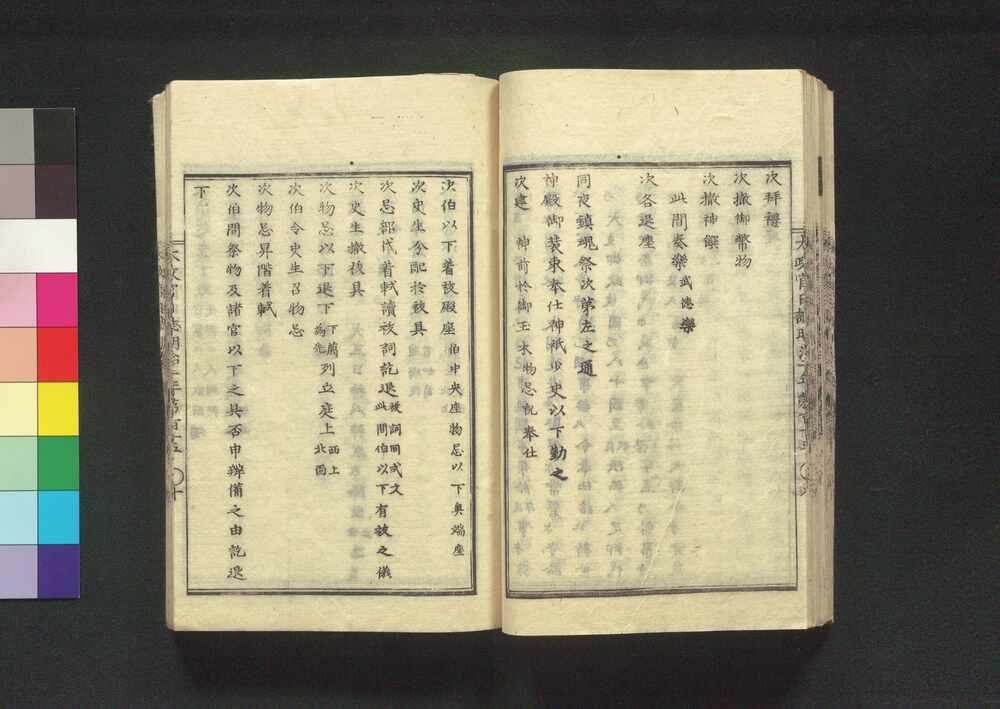 次拜禮
次撤御幣物
次撤神饌
此間奏樂武德樂
次各退座
同夜鎮魂祭次第左之通
神殿御裝束奉仕神祇少史以下勤之
次建 神前於御玉木物忌訖奉仕
次伯以下着祓殿座伯中央座物忌以下奥端座
次史生分配於祓具
次忌部代着軾讀祓詞訖退祓詞用式文此間伯以下有祓之儀
次史生撤祓具
次物忌以下退下下﨟為先列立庭上西上北面
次伯令史生召物忌
次物忌昇階着軾
次伯問祭物及諸官以下之具否申辨備之由訖退
下